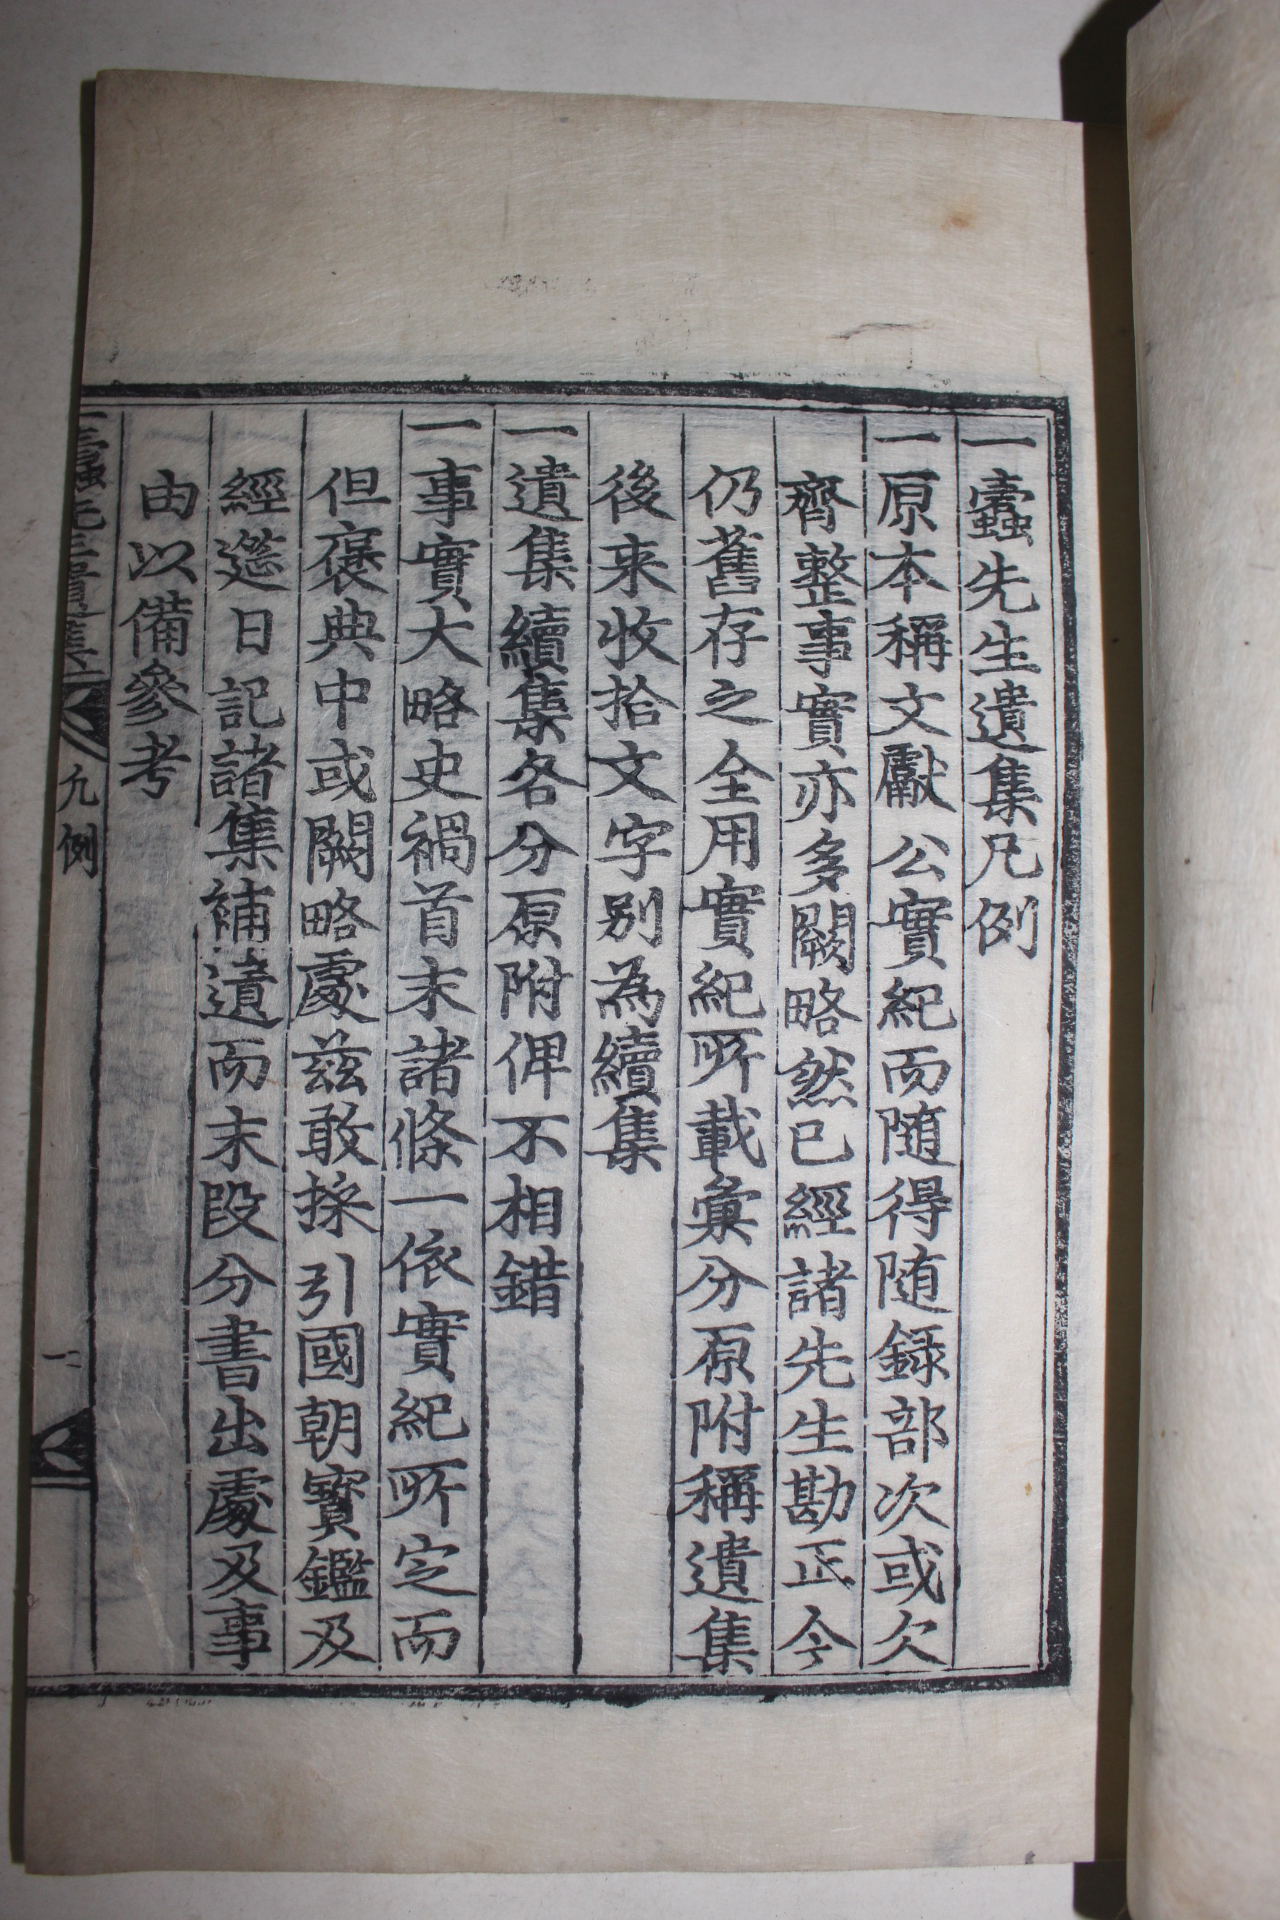 一蠹先生遺集凡例
一原本稱文獻公實紀而随得随録部次或欠
齊整事實亦多闕略然已經諸先生勘正今
仍舊存之全用實紀所載彙分原附稱遺集
後来收拾文字别為續集
一遺集續集各分原附俾不相錯
一事實大略史禍首末諸條一依實紀所定而
但褒典中或闕略處茲敢採引國朝寶鑑及
經筵日記諸集補遺而末段分書出處及事
由以備參考
一蠹先生遺集 凡例 一